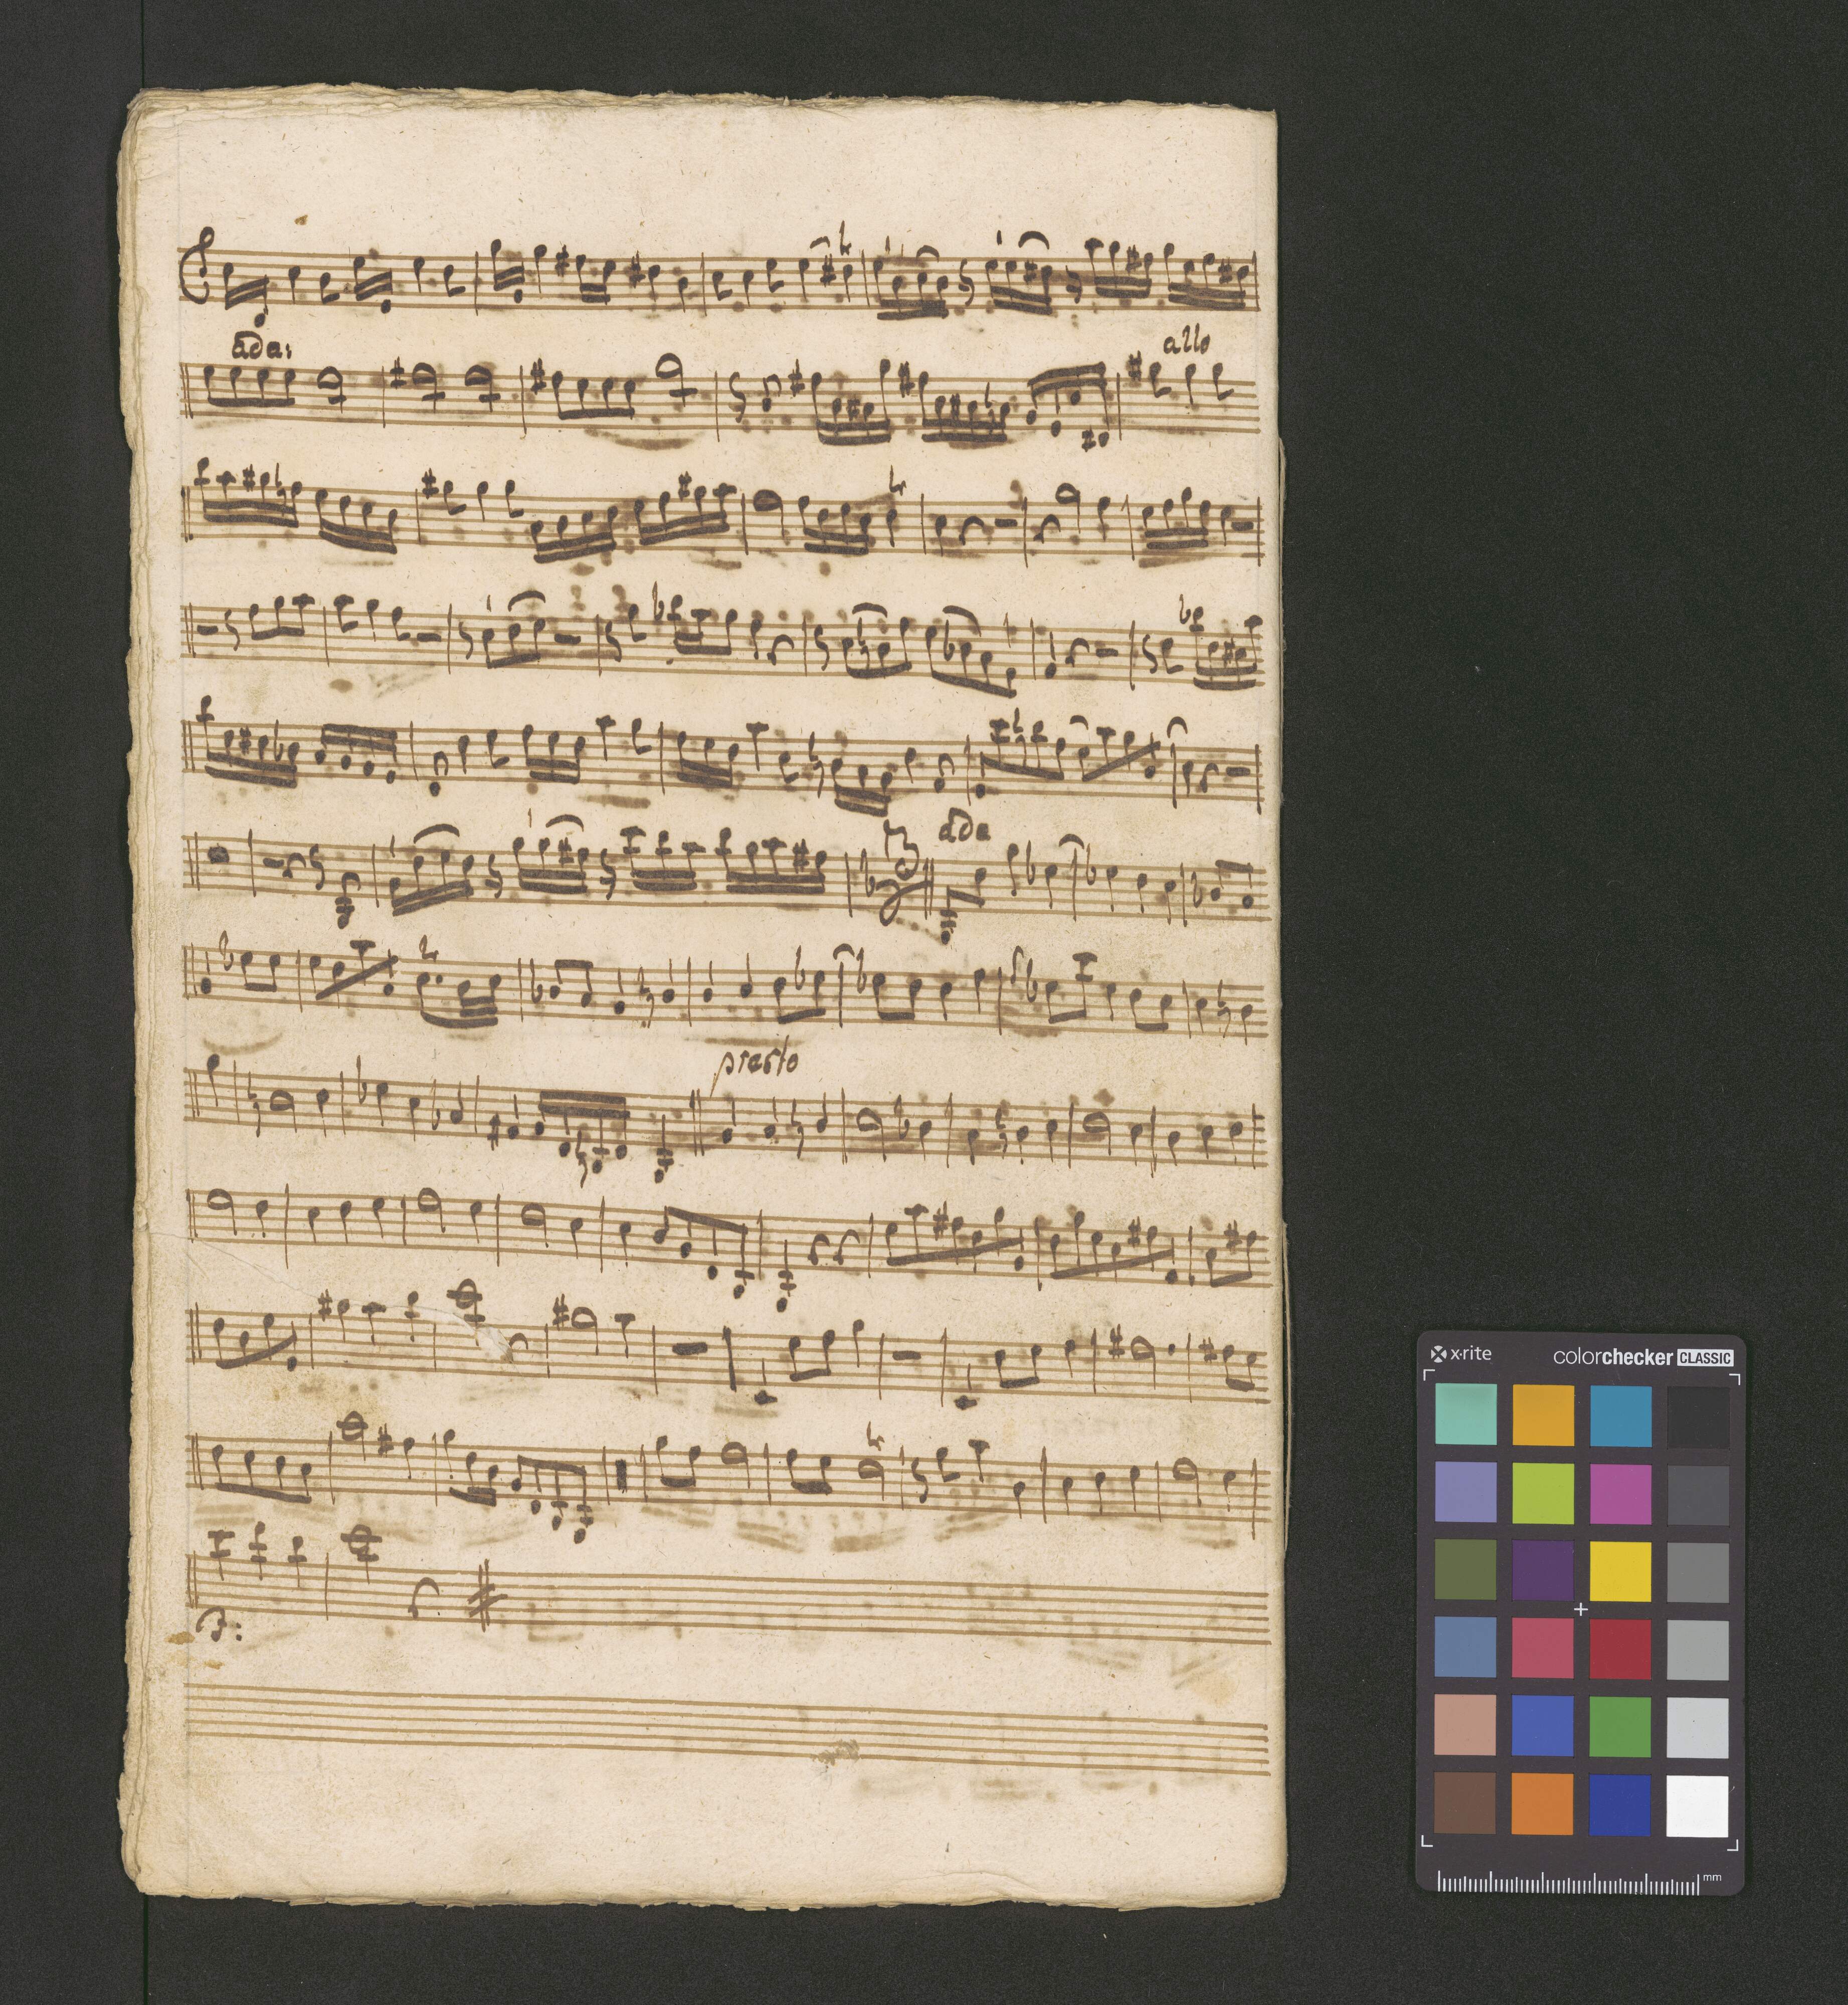 ada:
allo
ada
presto
x·rite
colorchecker CLASSIC
mm